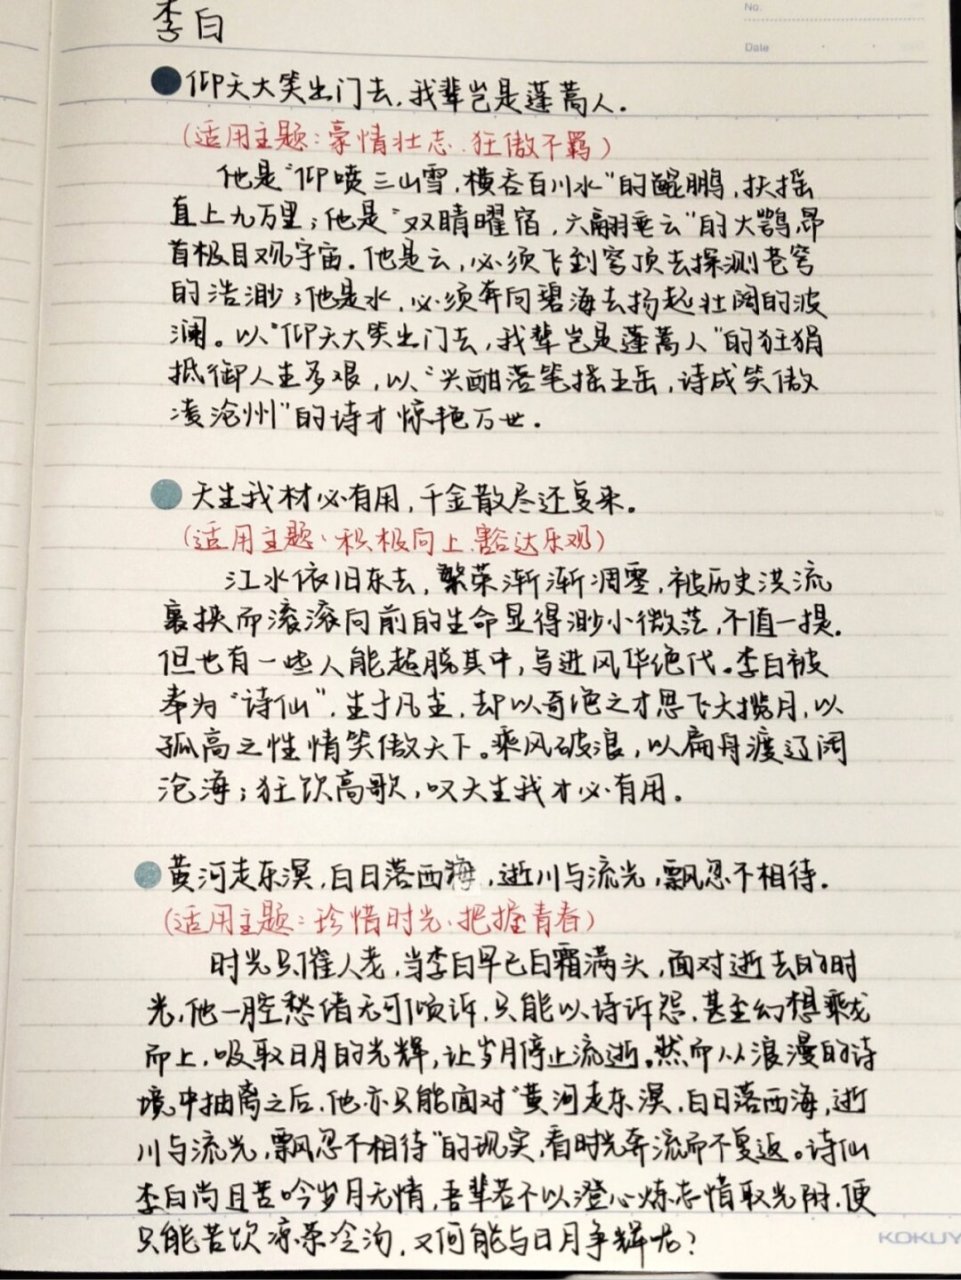 No.
李白
Date
●仰天大笑出门去,我辈岂是蓬蒿人.
(适用主题:豪情壮志.狂傲不羁)
他是“仰喷三山雪,横吞百川水”的鲲鹏,扶摇
直上九万里;他是“双睛曜宿,六翮垂云”的大鹗,昂
首极目观宇宙.他是云,必须飞到穹顶去探测苍穹
的浩渺;他是水,必须奔向碧海去扬起壮阔的波
澜。以“仰天大笑出门去,我辈岂是蓬蒿人”的狂狷
抵御人生多艰,以“兴酣落笔摇五岳,诗成笑傲
凌沧州”的诗才惊艳万世.
●天生我材必有用,千金散尽还复来。
(适用主题:积极向上.豁达乐观)
江水依旧东去,繁荣渐渐凋零,被历史洪流
裹挟而滚滚向前的生命显得渺小微茫,不值一提.
但也有一些人能超脱其中,写进风华绝代。李白被
奉为“诗仙”,生于凡尘,却以奇绝之才思飞天揽月,以
孤高之性情笑傲天下。乘风破浪,以扁舟渡辽阔
沧海;狂饮高歌,叹天生我才必有用.
●黄河走东溟,白日落西海,逝川与流光,飘忽不相待.
(适用主题:珍惜时光.把握青春)
时光只催人老,当李白早已白霜满头,面对逝去的时
光,他一腔愁绪无可倾诉,只能以诗诉怨,甚至幻想乘龙
而上,吸取日月的光辉,让岁月停止流逝。然而从浪漫的诗
境中抽离之后,他亦只能面对“黄河走东溟,白日落西海,逝
川与流光,飘忽不相待”的现实,看时光奔流而不复返。诗仙
李白尚且苦吟岁月无情,吾辈若不以澄心炼志惜取光阴,便
只能苦饮凉茶冷汤,又何能与日月争辉尤?
KOKUY